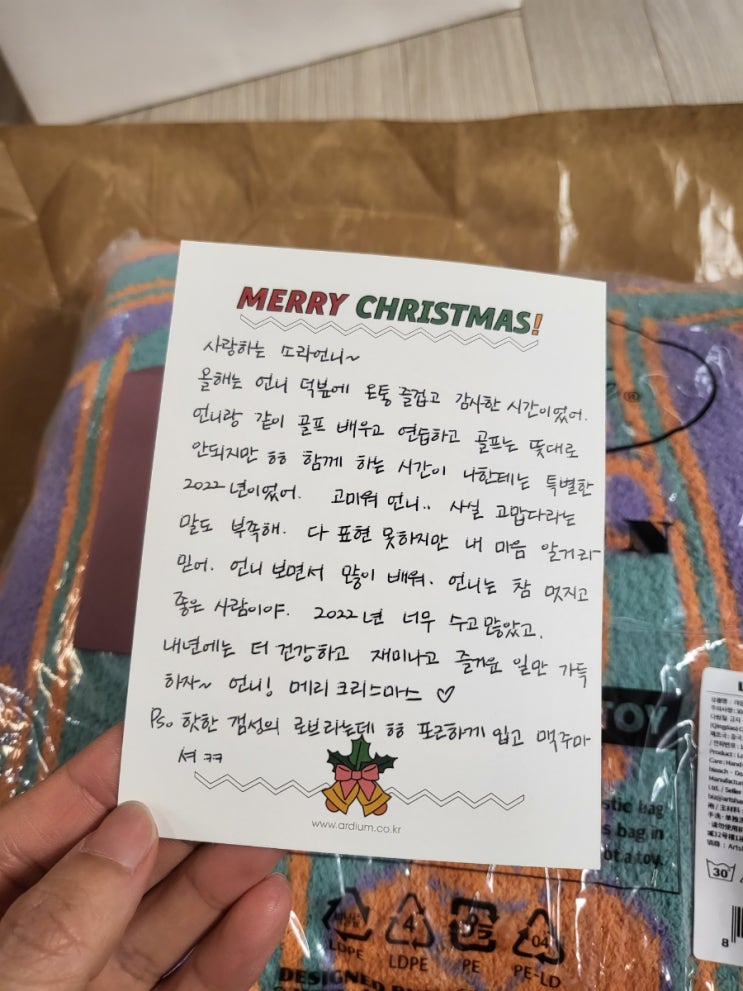 MERRY CHRISTMAS!
사랑하는 쏘라언니~
올해는 언니 덕분에 온통 즐겁고 감사한 시간이었어.
언니랑 같이 골프 배우고 연습하고 골프는 뜻대로
안되지만 ㅎㅎ 함께 하는 시간이 나한테는 특별한
2022년이었어. 고마워 언니.. 사실 고맙다라는
말도 부족해. 다 표현 못하지만 내 마음 알거라
믿어. 언니 보면서 많이 배워. 언니는 참 멋지고
좋은 사람이야. 2022년 너무 수고많았고,
내년에는 더 건강하고 재미나고 즐거운 일만 가득
하자~ 언니! 메리 크리스마스 ♡
Ps. 핫한 갬성의 로브라는데 ㅎㅎ 포근하게 입고 맥주마
셔 ㅋㅋ
www.ardium.co.kr
®
N
TOY
stic bag
s bag in
ot a toy.
LDPE
4
LDPE
PE
04
PE-LD
DESIGNED
30
8